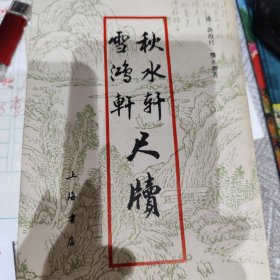 秋水轩
雪鸿轩
尺牍
上海书店